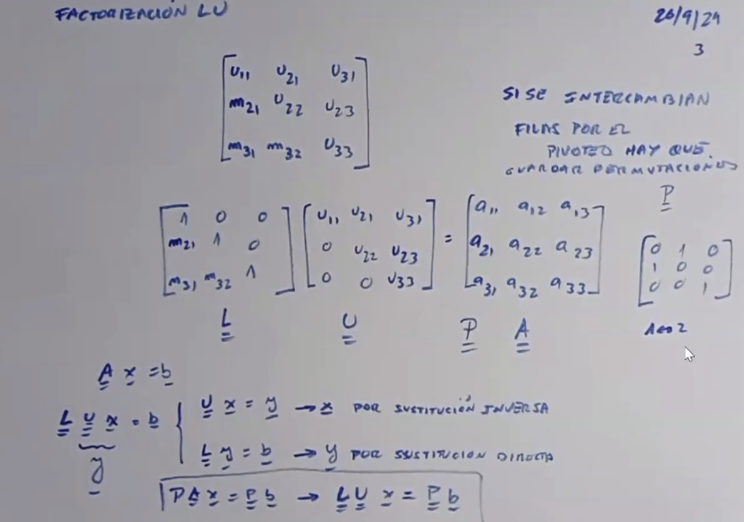 FACTORIZACIÓN LU
26/9/24
3
U11 U21 U31
m21 U22 U23
m31 m32 U33
SI SE INTERCAMBIAN
FILAS POR EL
PIVOTEO HAY QUE
GUARDAR PERMUTACIONES
P
1 0 0
m21 1 0
m31 m32 1
U11 U21 U31
0 U22 U23
0 0 U33
=
a11 a12 a13
a21 a22 a23
a31 a32 a33
0 1 0
1 0 0
0 0 1
L U P A
1↔2
A x = b
L U x = b
y
U x = y → x POR SUSTITUCIÓN INVERSA
L y = b → y POR SUSTITUCIÓN DIRECTA
P A x = P b → L U x = P b